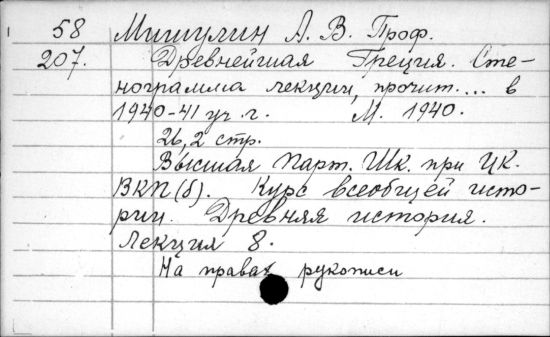 58 Мишулин А. В. Проф.
207. Древнейшая Греция. Сте-
нограмма лекции, прочит.... в
1940-41 уч. г. М. 1940.
26, 2 стр.
Высшая Парт. Шк. при ЦК.
ВКП(б). Курс всеобщей исто-
рии. Древняя история.
Лекция 8.
На правах рукописи